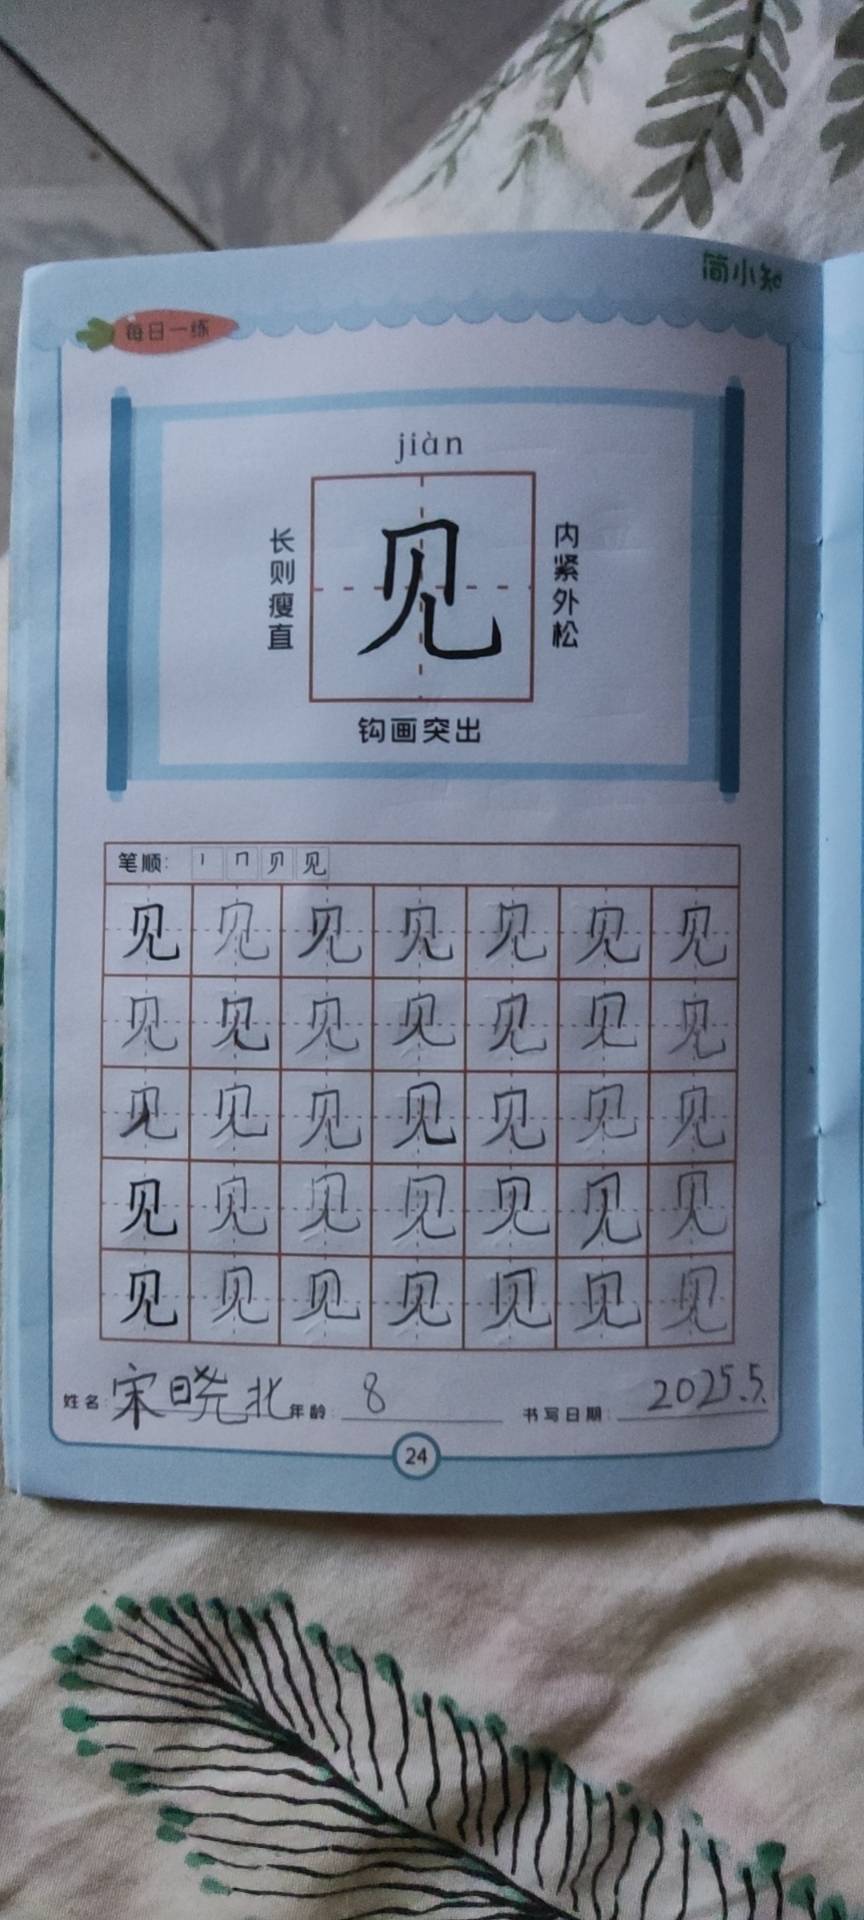 简小知
每日一练
jiàn
长则瘦直
见
内紧外松
钩画突出
笔顺: 丨 冂 贝 见
见 见 见 见 见 见 见
见 见 见 见 见 见 见
见 见 见 见 见 见 见
见 见 见 见 见 见 见
见 见 见 见 见 见 见
姓名: 宋晓北 年龄: 8 书写日期: 2025.5.
24